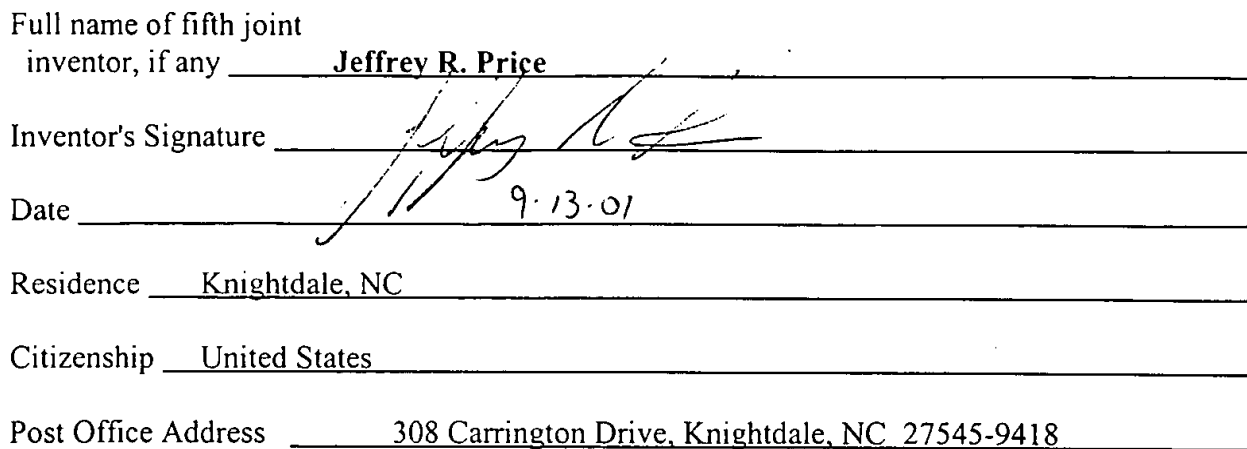 Full name of fifth joint
inventor, if any Jeffrey R. Price
Inventor's Signature
Date 9.13.01
Residence Knightdale, NC
Citizenship United States
Post Office Address 308 Carrington Drive, Knightdale, NC 27545-9418